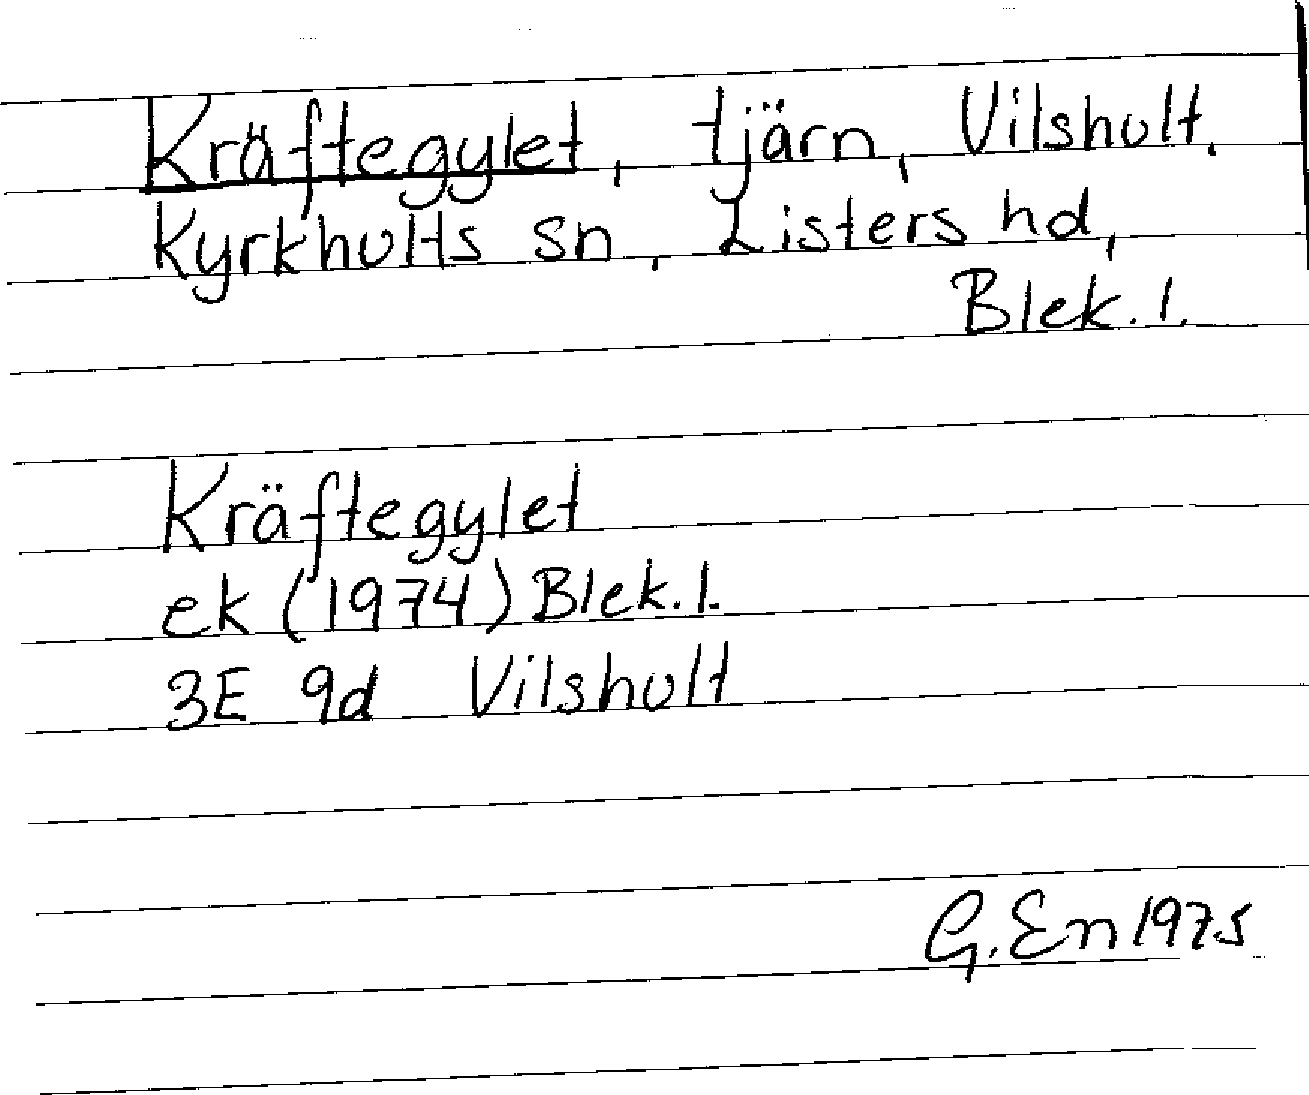 Kräftegylet, tjärn, Vilshult,
Kyrkhults sn, Listers hd,
Blek. l.
Kräftegylet
ek (1974) Blek. l.
3E 9d Vilshult
G. En 1975